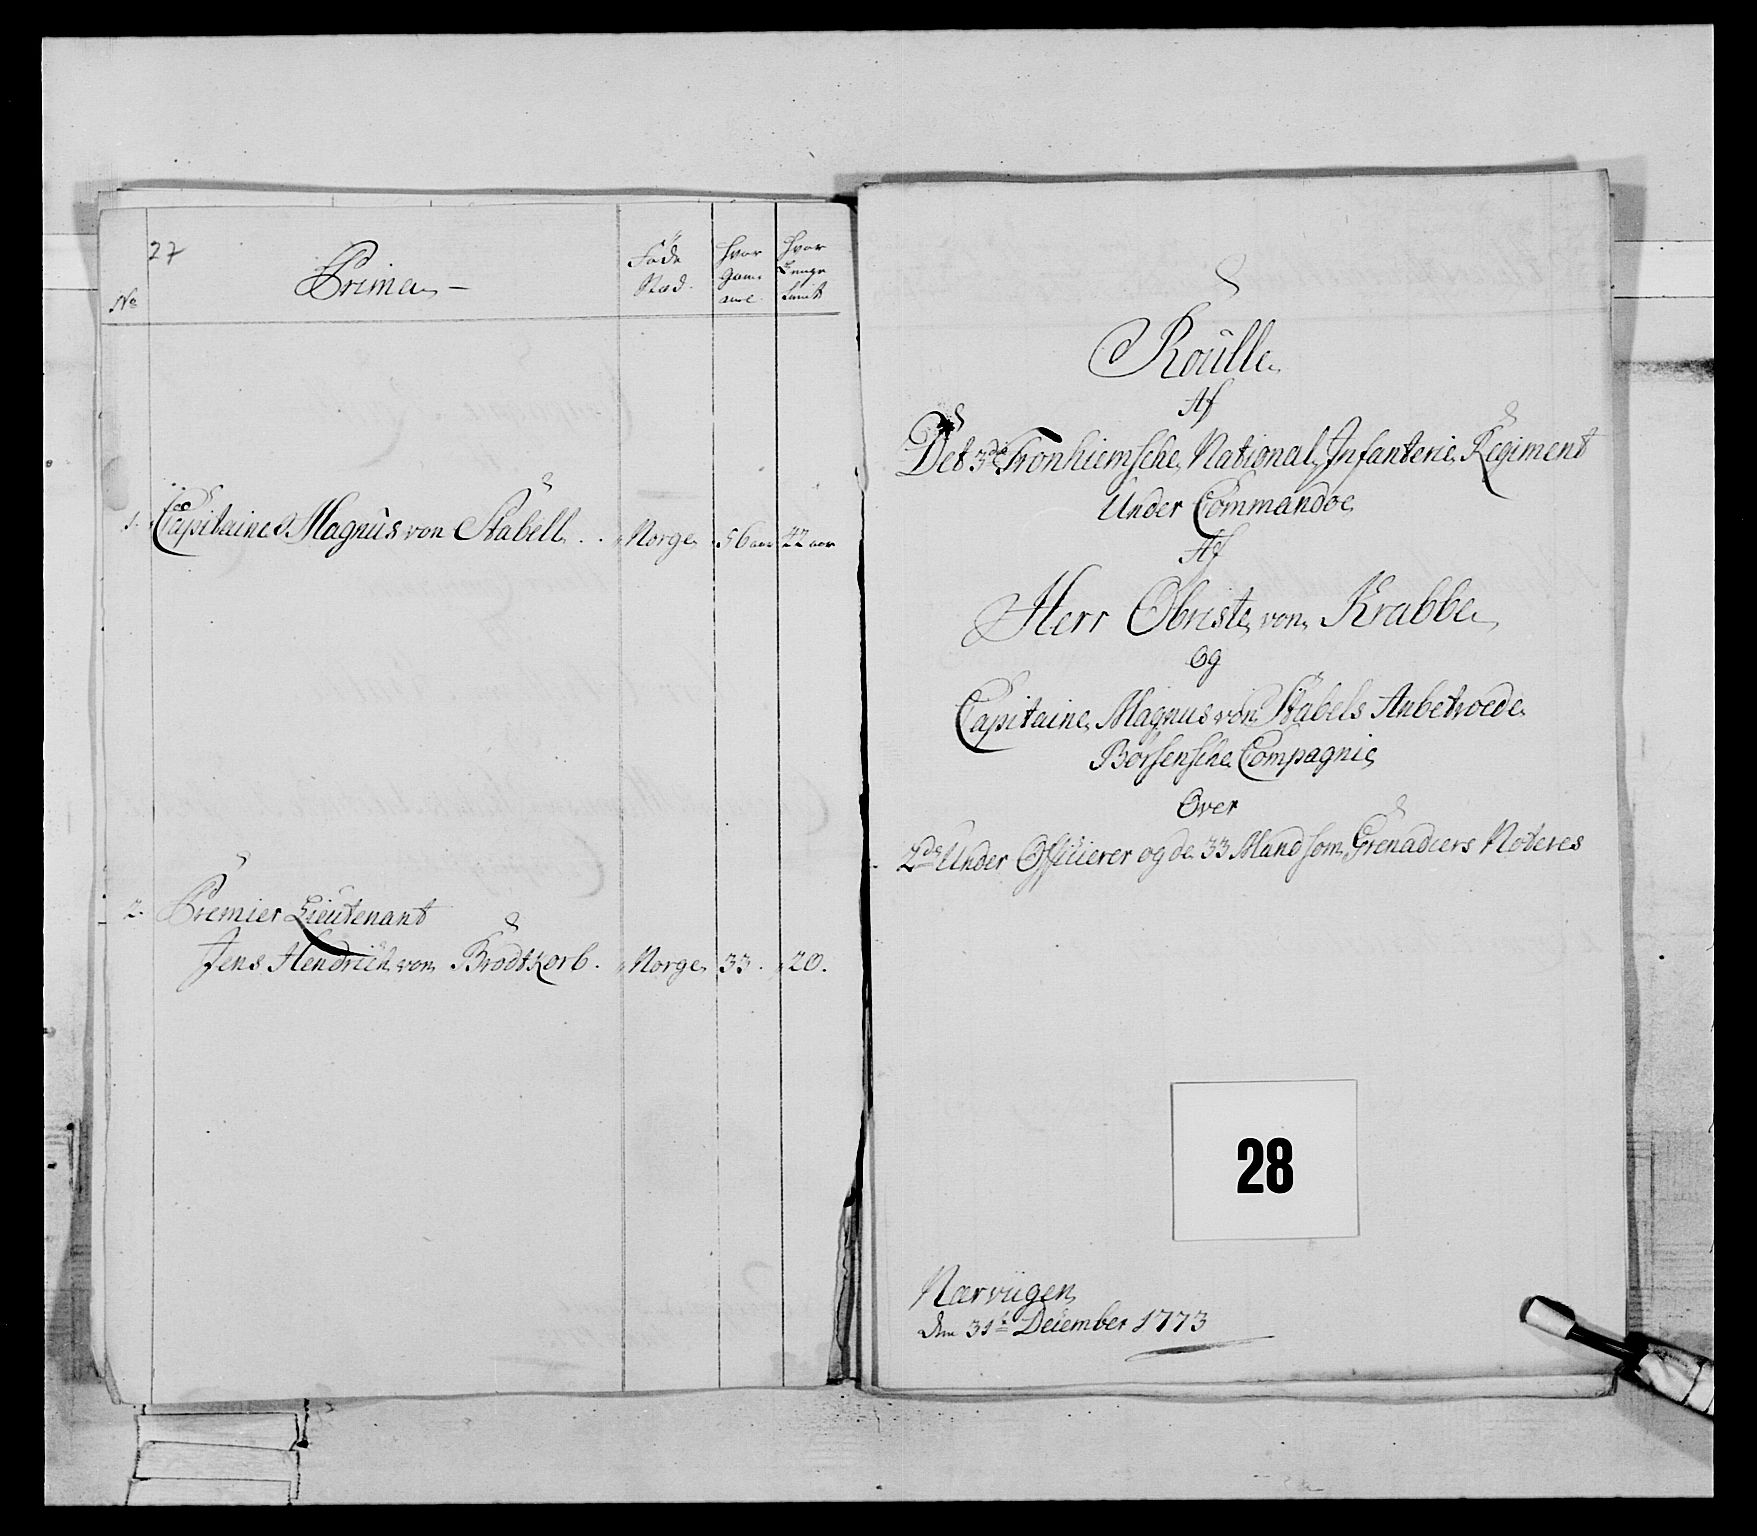 27
No
Prima
Föde
Stæd.
Hvor
Gam̅
Hvor
Lenge
tient
1. Capitaine Magnus von Stabell . . Norge 56 aar 22 aar
2. Premier Lieutenant
Jens Hendrich von Brodtkorb. Norge 33. 20.
Roulle
Af
Det 3de Tronhiemsche National Infanterie Regiment
Under Commandoe
Af
Herr Obriste von Krabbe
Og
Capitaine Magnus von Stabels Anbetroede
Börsensche Compagnie
Over
2de Under Officierer og de 33 Mand som Grenadiers Noteres
28
Nærviigen
den 31t December 1773